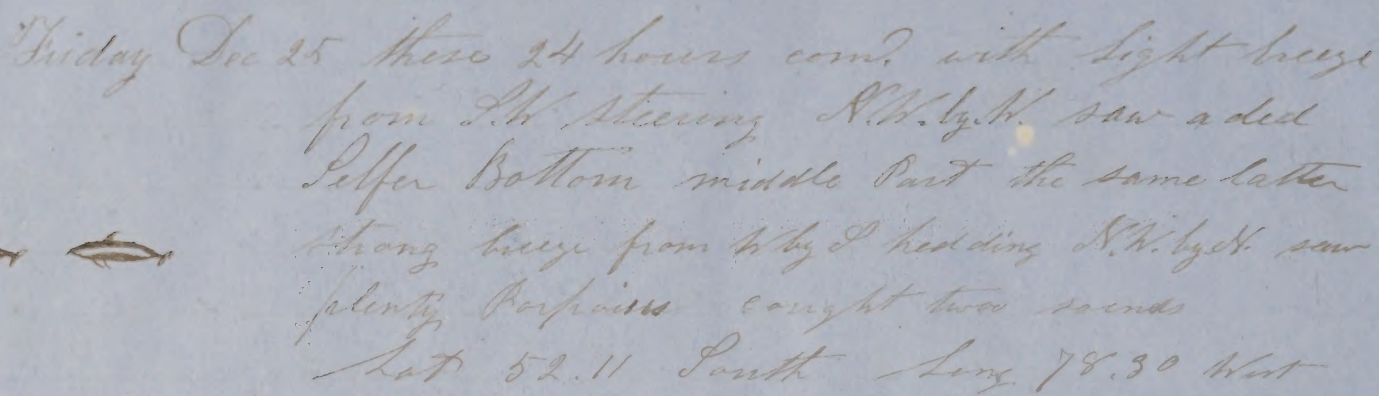 Friday Dec 25 these 24 hours com? with light breeze
from S.W steering N.W.by.W. saw a ded
Selfer Bottom middle Part the same latter
strong breeze from W by S hedding N.W. by N. saw
plenty Porpoises caught two
Lat 52.11 South Long 78.30 West